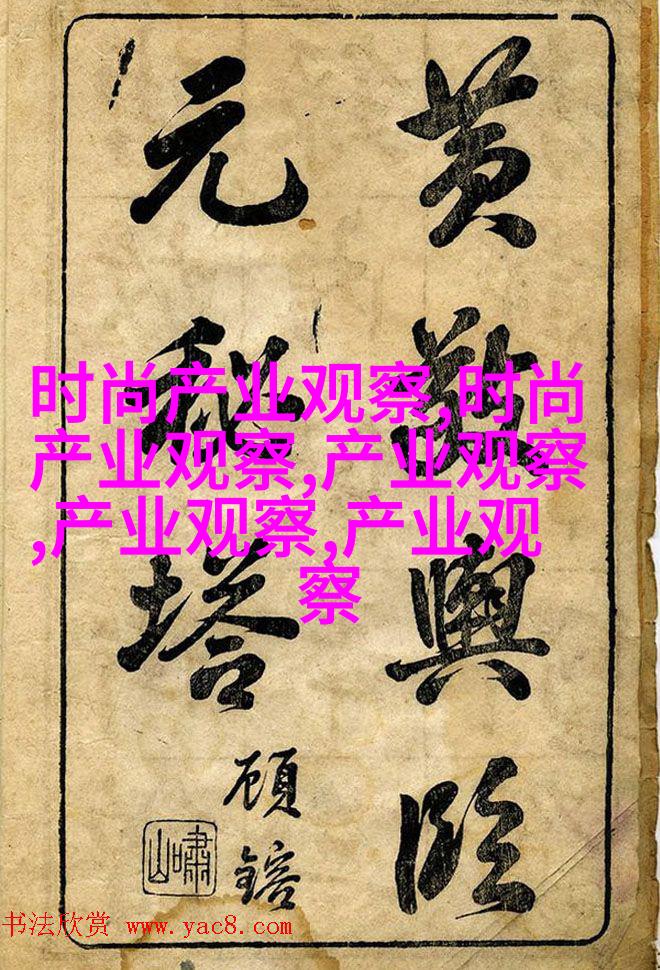 黄敬輿臨
元秘塔
顧鎔
嘯山
时尚产业观察,时尚
产业观察,产业观察
,产业观察,产业观
察
书法欣赏 www.yac8.com